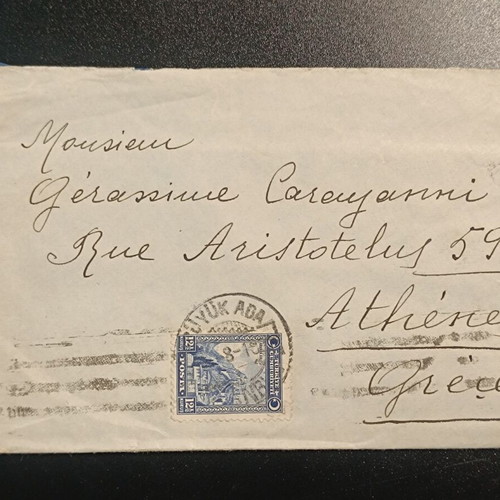 Monsieur
Gérassime Carayanni
Rue Aristotelus 59
Athéne
Grèce
BÜYÜK ADA
8-
TÜRKİYE
CUMHURİYETİ
12½
POSTA
12½